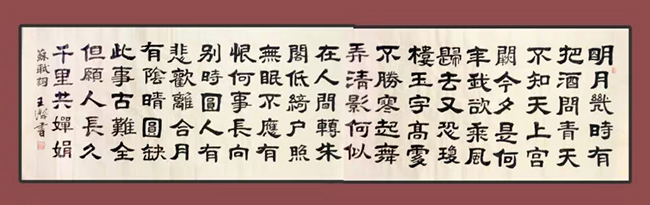 明月幾時有
把酒問青天
不知天上宮
闕今夕是何
年我欲乘風
歸去又恐瓊
樓玉宇高處
不勝寒起舞
弄清影何似
在人間轉朱
閣低綺户照
無眠不應有
恨何事長向
别時圓人有
悲歡離合月
有陰晴圓缺
此事古難全
但願人長久
千里共嬋娟
蘇軾詞 王書